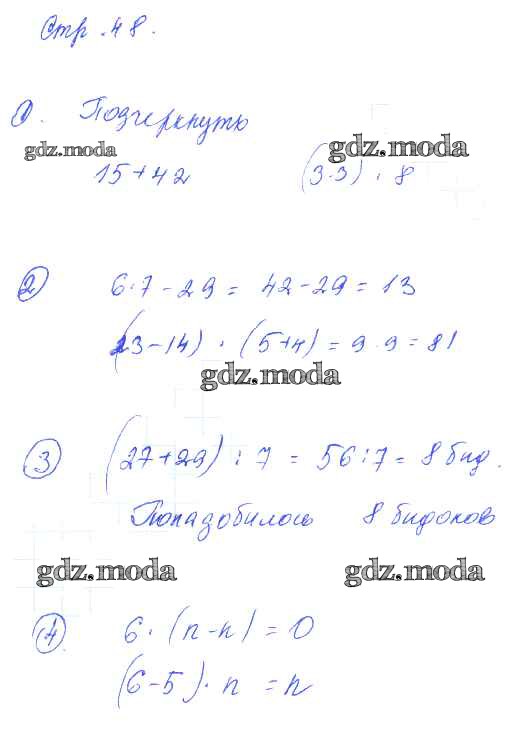 Стр. 48.
1. Подчеркнуто
gdz.moda gdz.moda
15+42 (3·3) · 8
2 6·7-29 = 42-29 = 13
(23-14) · (5+4) = 9·9 = 81
gdz.moda
3 (27+29) : 7 = 56:7 = 8 бид.
Понадобилось 8 бидонов
gdz.moda gdz.moda
4 6 · (n-n) = 0
(6-5) · n = n